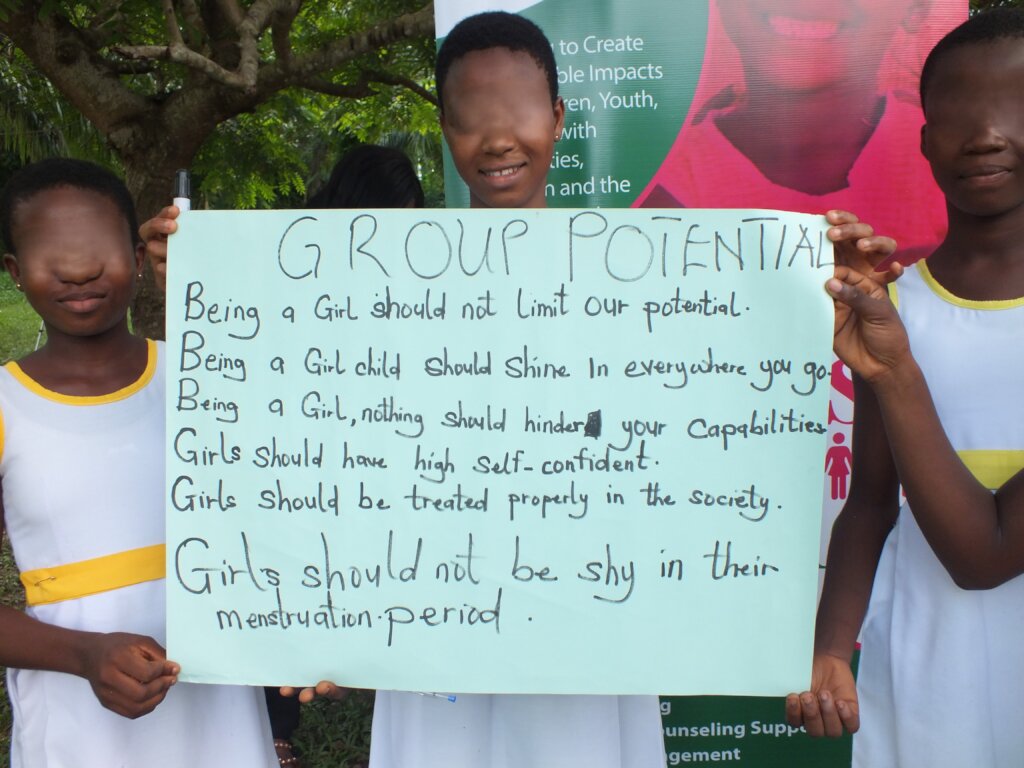 to Create
ble Impacts
ren, Youth,
with
ties,
n and the
GROUP POTENTIAL
Being a Girl should not limit our potential.
Being a Girl child should shine In everywhere you go.
Being a Girl, nothing should hinder your capabilities
Girls should have high self-confident.
Girls should be treated properly in the society.
Girls should not be shy in their
menstruation.period.
S
g
ounseling Suppo
gement